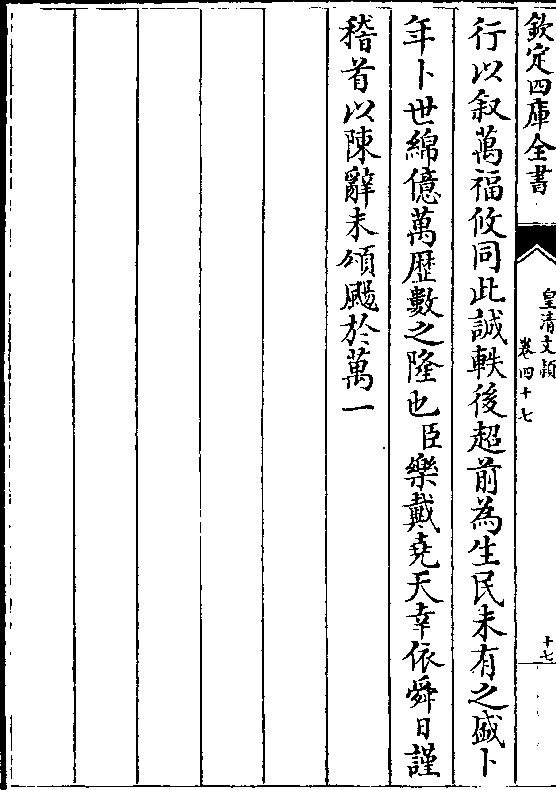 欽定四庫全書
皇清文穎
卷四十七
十七
行以叙萬福攸同此誠軼後超前為生民未有之盛卜
年卜世綿億萬歷數之隆也臣樂戴堯天幸依舜日謹
稽首以陳辭未頌颺於萬一